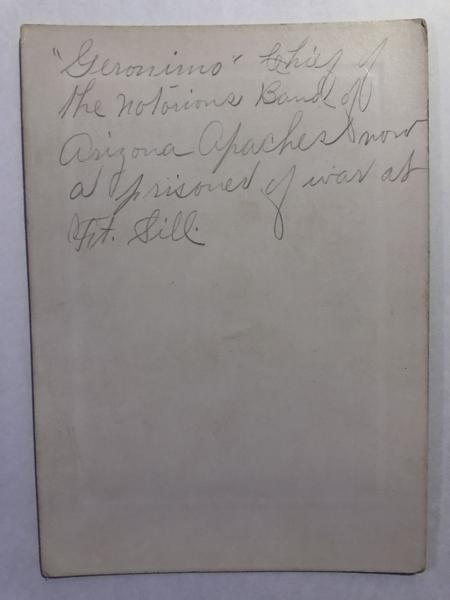 "Geronimo" Chief of
the notorious Band of
Arizona Apaches now
a prisoner of war at
Ft. Sill.